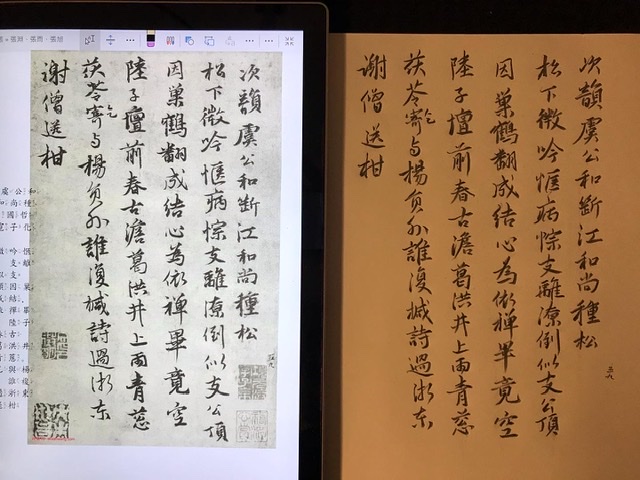 次韻虞公和斷江和尚種松
松下微吟愜病悰支離潦倒似支公頂
因巢鶴翻成結心為依禪畢竟空
陸子壇前春古澹葛洪井上雨青葱
茯苓乞寄与楊員外誰復緘詩過浙东
謝僧送柑
五九
次韻虞公和斷江和尚種松
松下微吟愜病悰支離潦倒似支公頂
因巢鶴翻成結心為依禪畢竟空
陸子壇前春古澹葛洪井上雨青葱
茯苓乞寄与楊員外誰復緘詩過浙东
謝僧送柑
五九